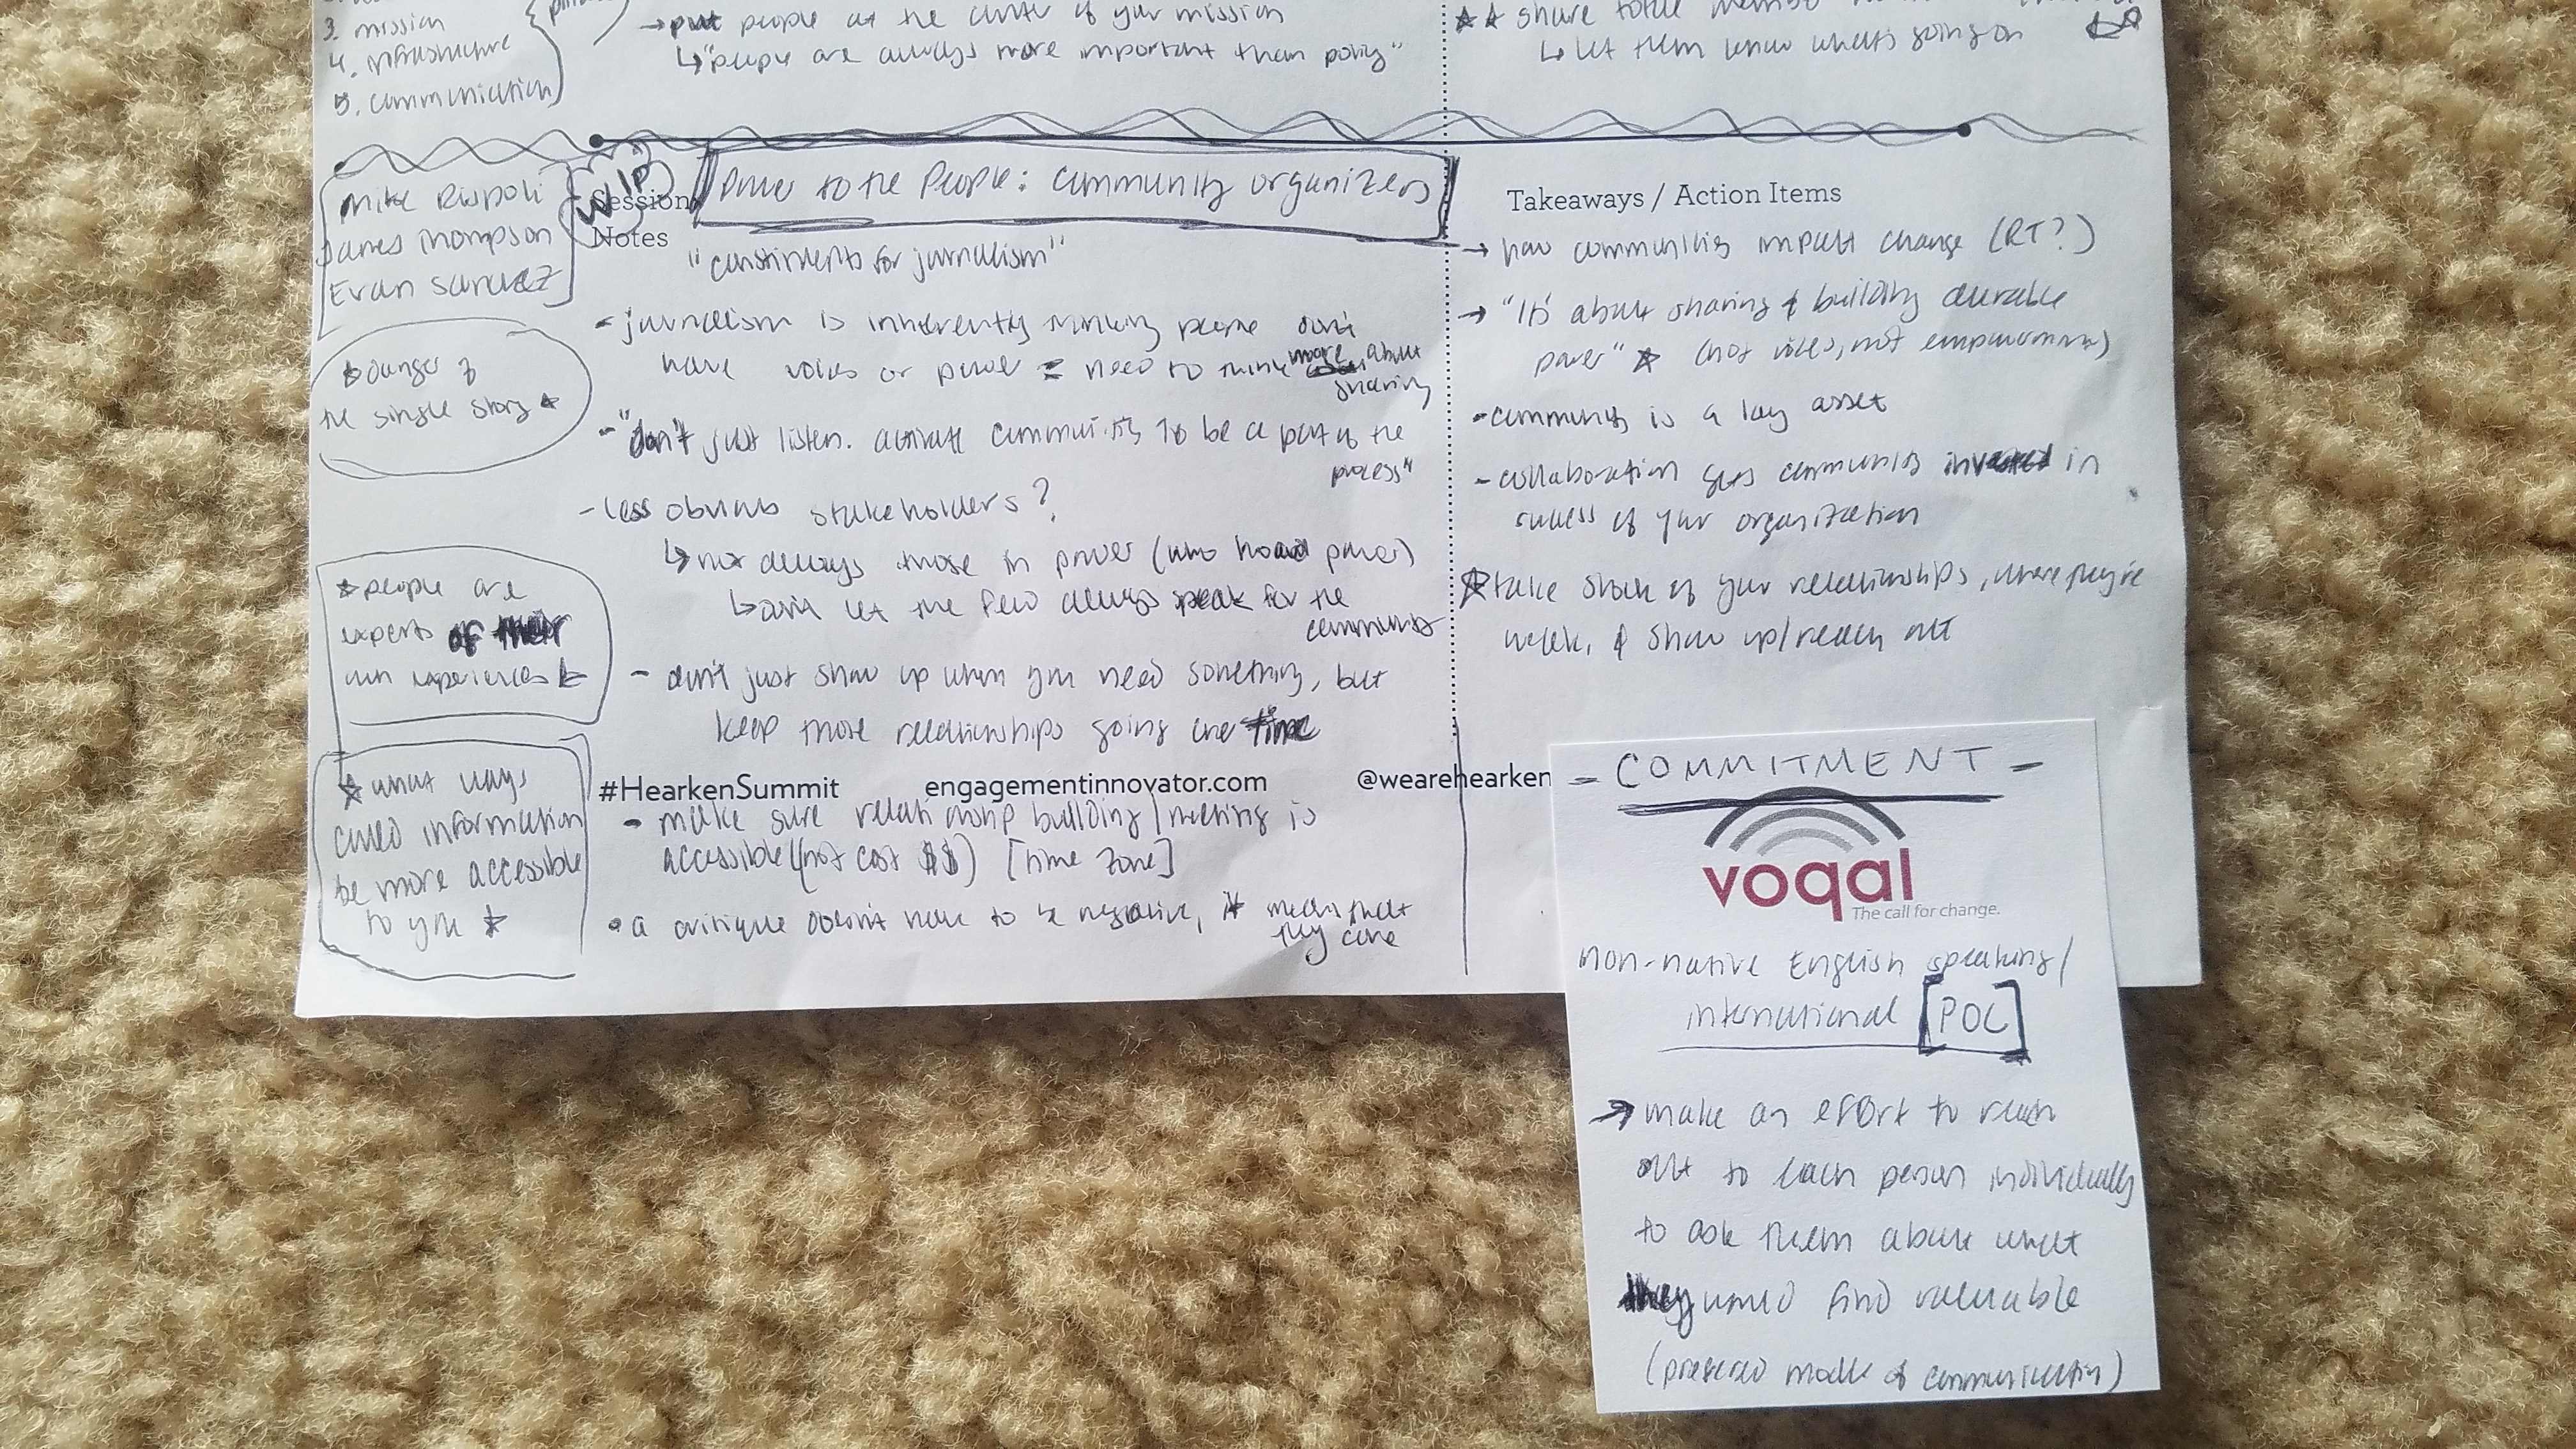 3. mission
4. infrastructure
5. communication
→ put people at the center of your mission
↳ "people are always more important than policy"
★★ share
↳ let them know what's going on
Mike Rispoli
James Thompson
Evan Sanchez
WIP
Session
Notes
Power to the People: community organizers
"constituents for journalism"
- journalism is inherently thinking people don't
have voices or power = need to think more about
sharing
- "don't just listen. activate communities to be a part of the
process"
- less obvious stakeholders?
↳ not always those in power (who hoard power)
↳ don't let the few always speak for the
community
- don't just show up when you need something, but
keep those relationships going over time
★ danger of
the single story ★
★ people are
experts of their
own experiences ★
★ what ways
could information
be more accessible
to you ★
#HearkenSummit engagementinnovator.com @wearehearken
- make sure relationship building/meeting is
accessible (not cost $$) [time zone]
• a critique doesn't have to be negative, it means that
they care
Takeaways / Action Items
→ how communities impact change (RT?)
→ "It's about sharing & building durable
power" ★ (not voices, not empowerment)
- community is a key asset
- collaboration gets community invested in
success of your organization
★ take stock of your relationships, where they're
weak, & show up/reach out
- COMMITMENT -
voqal
The call for change.
non-native English speaking/
international [POC]
→ make an effort to reach
out to each person individually
to ask them about what
they would find valuable
(preferred mode of communication)